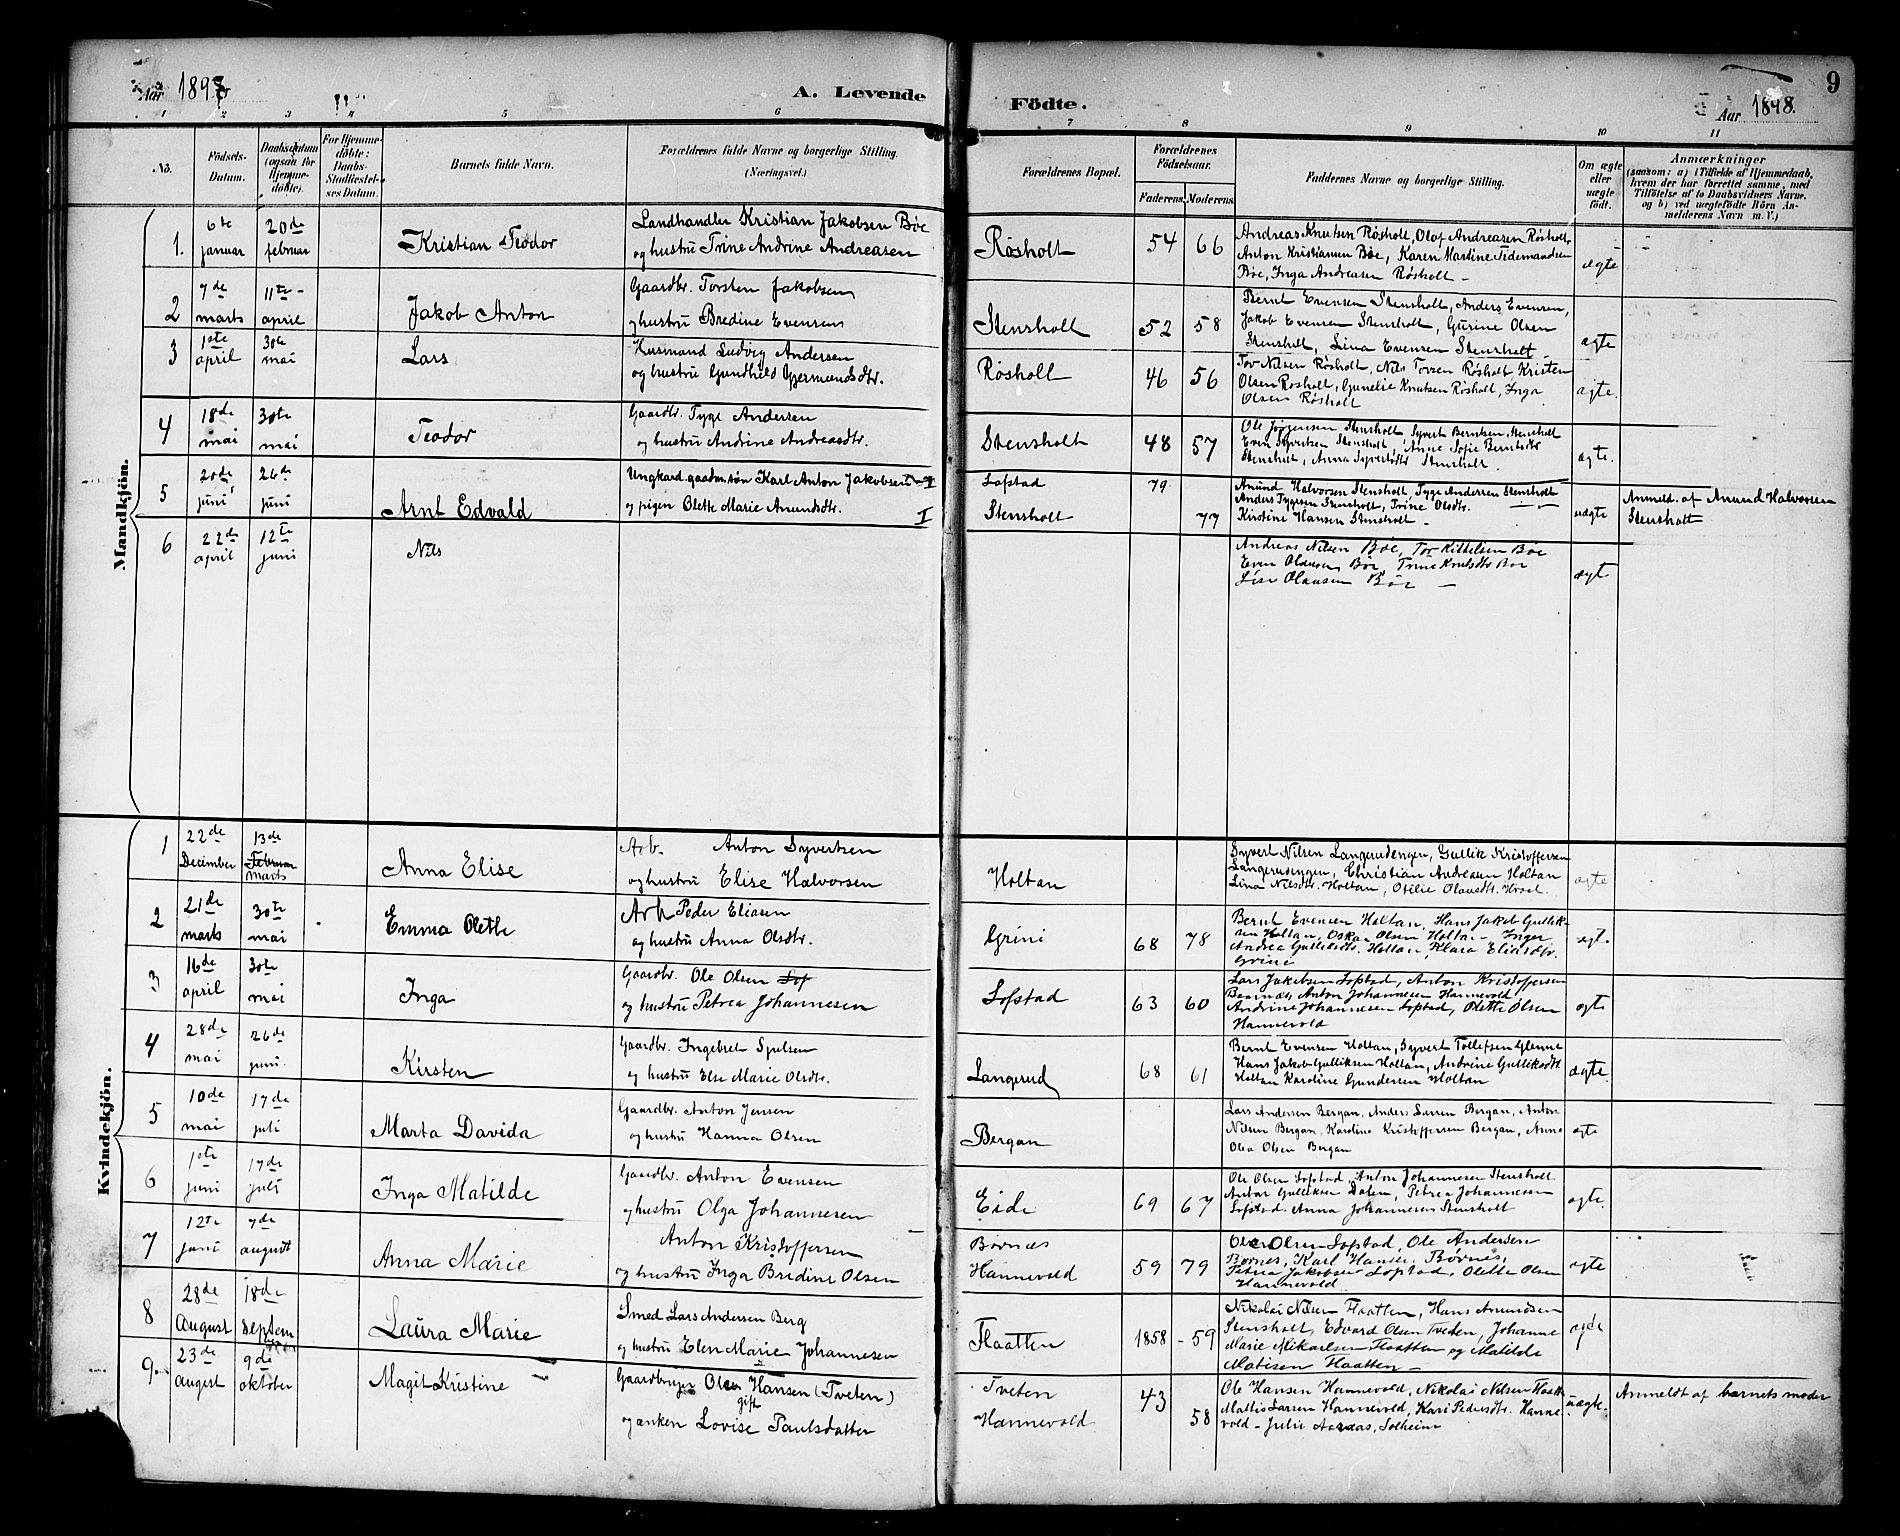 Aar 1898
A. Levende
Födte.
Aar 1898.
9
1 2 3 4 5 6 7 8 9 10 11
No.
Födsels-
Datum.
Daabsdatum
(også for
Hjemme-
döbte).
For Hjemme-
döbte:
Daabs-
Stadfæstel-
ses Datum.
Barnets fulde Navn.
Forældrenes fulde Navne og borgerlige Stilling.
(Næringsvei.)
Forældrenes Bopæl.
Forældrenes
Födselsaar.
Faderens. Moderens.
Faddernes Navne og borgerlige Stilling.
Om ægte
eller
uægte
født.
Anmærkninger
(saasom: a) i Tilfælde af Hjemmedaab,
hvem der har forrettet samme, med
Tilföielse af to Daabsvidners Navne.
og b) ved uægtefödte Börn An-
melderens Navn m. V.)
Mandkjön.
1. 6te januar
20de februar
Kristian Teodor
Landhandler Kristian Jakobsen Bøe
og hustru Trine Andrine Andreasen
Røsholt
54 66
Andreas Knutsen Røsholt, Olaf Andreasen Røsholt,
Anton Kristiansen Bøe, Karen Martine Tidemandsen
Bøe, Inga Andreasen Røsholt -
ægte
2 7de marts
11te april
Jakob Anton
Gaardbr. Torsten Jakobsen
og hustru Bredine Evensen
Stensholt
52 58
Bernt Evensen Stensholt, Anders Evensen,
Jakob Evensen Stensholt, Gurine Olsen
Stensholt, Lina Evensen Stensholt
ægte
3 1ste april
30te mai
Lars
Husmand Ludvig Andersen
og hustru Gundhild Gjermundsdtr.
Røsholt
46 56
Tov Nilsen Røsholt, Nils Tovsen Røsholt Kristen
Olsen Røsholt, Gunelie Knutsen Røsholt, Inga
Olsen Røsholt
ægte.
4 18de mai
30te mai
Teodor
Gaardbr. Tyge Andersen
og hustru Andrine Andreasdtr.
Stensholt
48 57
Ole Jørgensen Stensholt Syvert Berntsen Stensholt
Even Syvertsen Stensholt, Anne Sofie Berntsdtr
Stensholt, Anna Syvertsdtr Stensholt.
ægte.
5 20de juni
26de juni
Arnt Edvald
Ungkard gaardm.søn Karl Anton Jakobsen I
og pigen Olette Marie Amundsdtr. I
Lofstad
Stensholt
79
77
Amund Halvorsen Stensholt, Tyge Andersen Stensholt
Anders Tygesen Stensholt, Trine Olsdtr.
Kirstine Hansen Stensholt -
uægte
Anmeld. af Amund Halvorsen
Stensholt
6 22de april
12te juni
Nils
Andreas Nilsen Bøe, Tor Kittelsen Bøe
Even Olausen Bøe, Trine Knutsdtr Bøe
Lise Olausen Bøe -
ægte
Kvindekjön.
1 22de December
13de Februar marts
Anna Elise
Arb. Anton Syvertsen
og hustru Elise Halvorsen
Holtan
Syvert Nilsen Langerudengen, Gullik Kristoffersen
Langerudengen, Christian Andreasen Holtan
Lina Nilsdtr. Holtan, Otilie Olausdtr.
ægte
2 21de marts
30te mai
Emma Olette
Arb Peder Eliasen
og hustru Anna Olsdtr.
Grini
68 78
Bernt Evensen Holtan, Hans Jakob Gullik-
sen Holtan, Oskar Olsen Holtan - Inger
Andrea Gulliksdtr. Holtan, Klara Eliasdtr.
Grini
ægt.
3 16de april
30te mai
Inga
Gaardbr. Ole Olsen Lof
og hustru Petrea Johannesen
Lofstad
63 60
Lars Jakobsen Lofstad, Anton Kristoffersen
Børnæs, Anton Johannesen Hannevold
Andrine Johannesen Lofstad, Olette Olsen
Hannevold
ægte
4 28de mai
26de juni.
Kirsten
Gaardbr. Ingebret
og hustru Else Marie Olsdtr.
Langerud
68 61
Bernt Evensen Holtan, Syvert Tollefsen Glenne
Hans Jakob Gulliksen Holtan, Andrine Gulliksdtr.
Holtan Karoline Gundersen Holtan
ægte.
5 10de mai
17de juli
Marta Davida
Gaardbr. Anton Jensen
og hustru Hanna Olsen
Bergan
Lars Andersen Bergan, Anders Larsen Bergan, Anton
Nilsen Bergan, Karoline Kristoffersen Bergan, Anne
Olea Olsen Bergan
ægte
6 1ste juni
17de juli
Inga Matilde
Gaardbr. Anton Evensen
og hustru Olga Johannesen
Eide
69 67
Ole Olsen Lofstad, Anton Johannesen Stensholt
Anton Gulliksen Dalen, Petrea Johannesen
Lofstad, Anna Johannesen Stensholt
ægte.
7 12te juni
7de august
Anna Marie
Anton Kristoffersen
og hustru Inga Bredine Olsen
Børnæs
Hannevold
59 79
Ole Olsen Lofstad, Ole Andersen
Børnes, Karl Hansen, Børnes,
Petrea Jakobsen Lofstad, Olette Olsen
Hannevold
ægte
8 28de August
18de Septem
Laura Marie
Smed Lars Andersen Berg
og hustru Elen Marie Johannesen
Flaatten
1858 - 59
Nikolai Nilsen Flaatten, Hans Amundsen
Stensholt, Edvard Olsen Tveten, Johanne
Marie Mikaelsen Flaatten og Matilde
Matisen Flaatten -
ægde
9. 23de august
9de oktober
Magit Kristine
Gaardbruger Olav Hansen (Tveten)
gift
og enken Lovise Paulsdatter
Tveten
Hannevold
43
58
Ole Hansen Hannevold, Nikolai Nilsen Flaatt
Mattis Larsen Hannevold, Kari Pedersdtr. Hanne
vold - Julie Aaraas, Solheim
uægte.
Anmeldt af barnets moder